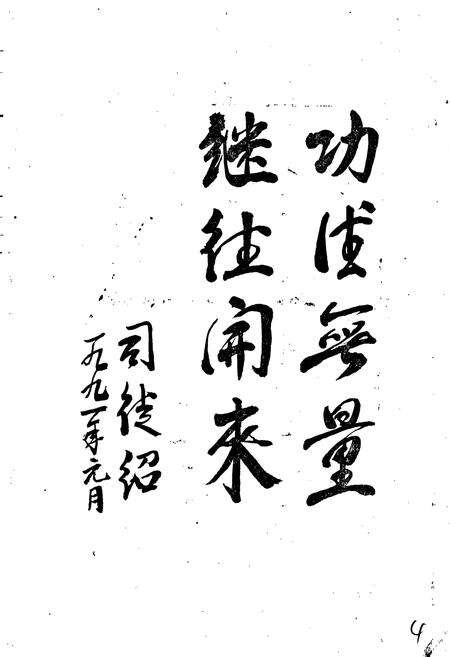 功德無量
继往開來
司徒绍
一九九一年元月
4